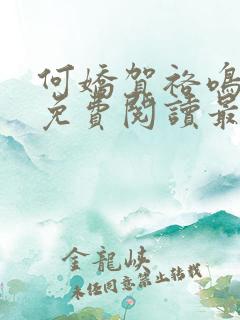 何嬌賀裕鳴
免費閱讀最
金龍峽
未经同意禁止转载